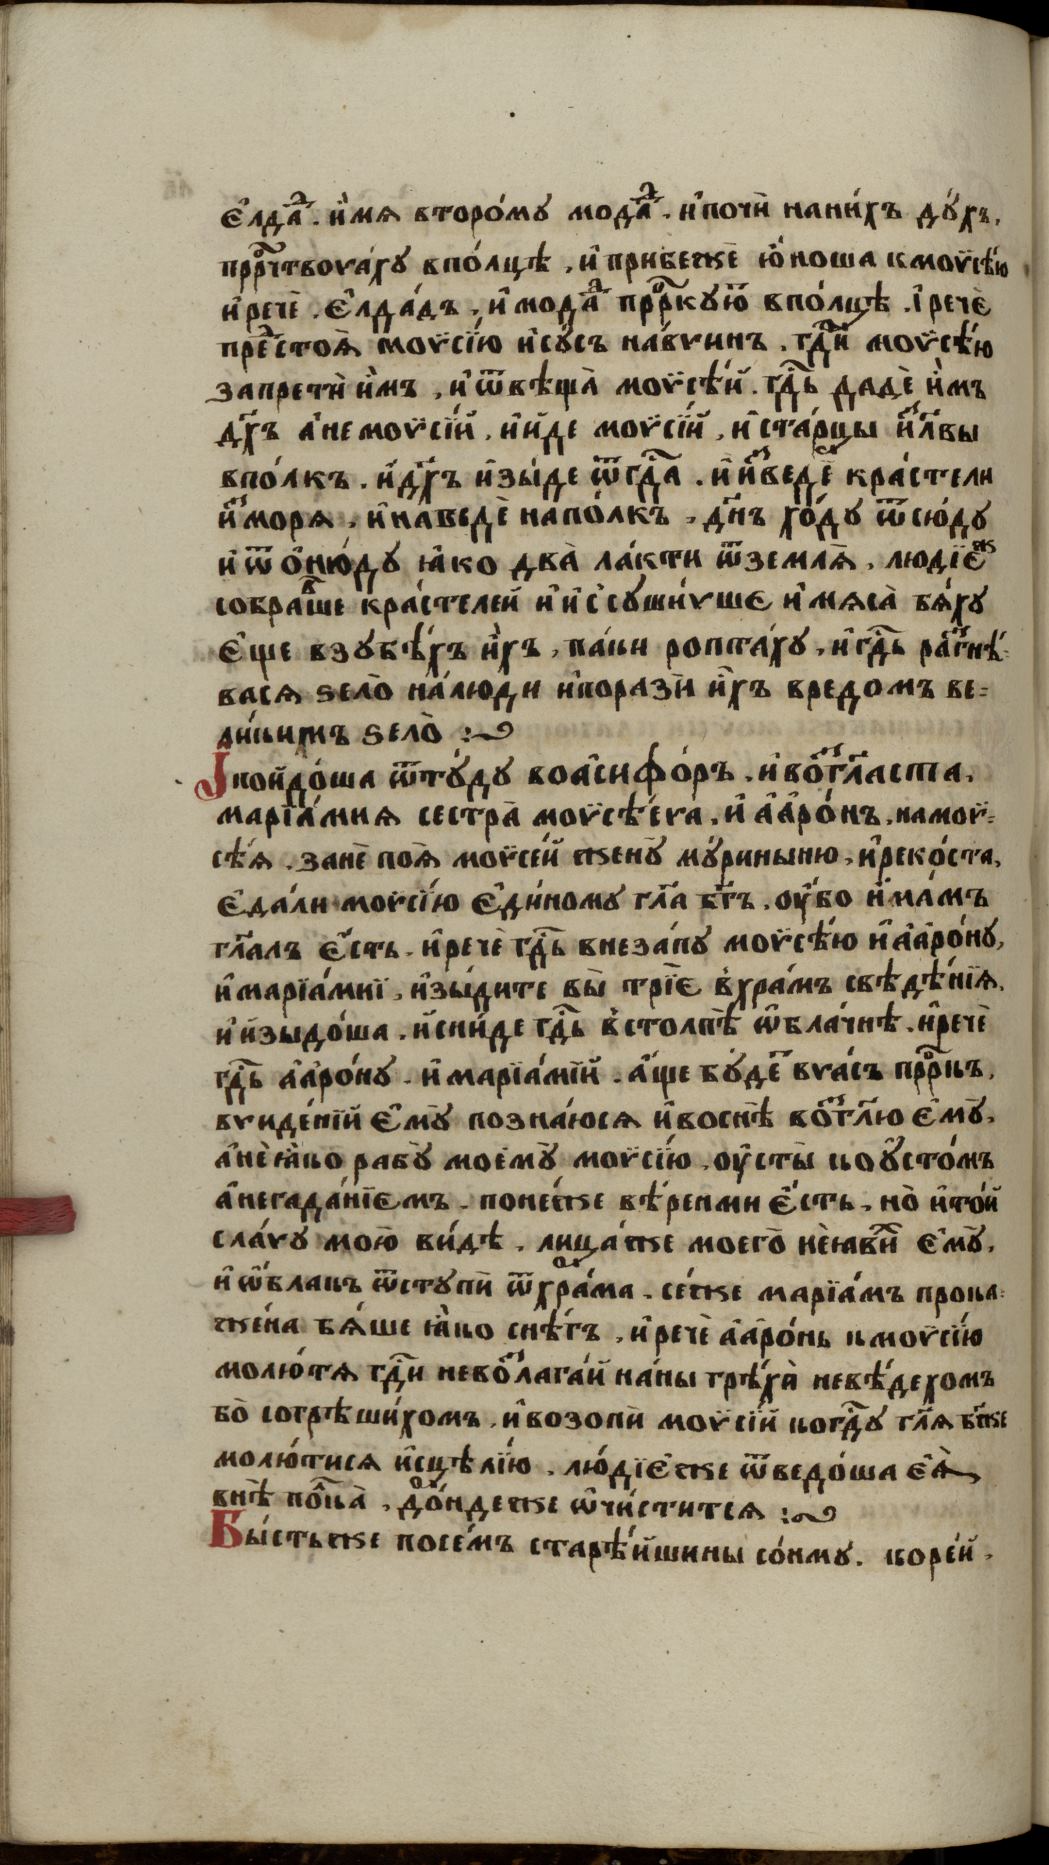 є҆лда́ⷣ. и҆́мѧ второ́му мода́ⷣ. и҆почѝ нани́хъ дꙋ́хъ,
прⷪ҇рчⷭ҇твова́хꙋ впо́лцѣ, и҆ прибежѐ ю҆́ноша кмоѷсѣ́ю
и҆речѐ. є҆лда́дъ, и҆ мода́ⷣ прⷪ҇ркꙋю̀ впо́лцѣ. і҆речѐ
преⷣстоѧ̀ моѷсі́ю и҆сꙋ́съ на́ѵинъ. гдⷭ҇и моѷсѣ́ю
запретѝ и҆̀мъ, и҆ ѿвѣща̀ моѷсѣ́й. гдⷭ҇ь дадѐ и҆̀мъ
дх҃ъ а҆́не моѷсі́й, и҆и́де моѷсі́й, и҆ ста́рцы и҆і҃лвы
впо́лкъ. и҆дх҃ъ и҆зы́де ѿгдⷭ҇а. и҆ и҆ⷥведѐ кра́стели
и҆ⷥ мо́рѧ, и҆ наведѐ напо́лкъ, дн҃ь хо́дꙋ ѿсю́дꙋ
и҆ ѿ ѻ҆ню́дꙋ ꙗ҆́ко два̀ ла́кти ѿземлѧ̀, лю́дїєⷤ
собра́вⷲше кра́стелей и҆ и҆ссꙋши́ѵше и҆ мѧса̀ бѧ́хꙋ
є҆ще взꙋбѣ́хъ и҆́хъ, па́ки ропта́хꙋ, и҆ гдⷭ҇ь раⷥгнѣ́-
васѧ ѕело̀ на́люди и҆поразѝ и҆́хъ вре́домъ ве-
ли́кимъ ѕело̀ :~
І҆поидо́ша ѿтꙋ́дꙋ воа҆сифо́ръ. и҆ воⷥгл҃аста,
марїа́мнѧ сестра̀ моѷсѣ́ѵа, и҆ а҆а҆ро́нъ, на моѷ-
сѣ́ѧ. занѐ поѧ̀ моѷсе́й женꙋ̀ мꙋ́риныню, и҆реко́ста,
є҆да́ли моѷсі́ю є҆ди́номꙋ гл҃а бг҃ъ, ᲂу҆́бо и҆ на́мъ
гл҃алъ є҆́сть. и҆ речѐ гдⷭ҇ь внеза́пꙋ моѷсѣ́ю и҆ а҆а҆ро́нꙋ,
и҆ марїа́мнї, и҆зы́дите вы̀ трїѐ в҆хра́мъ свѣдѣ́нїѧ,
и҆ и҆зыдо́ша. и҆сни́де гдⷭ҇ь в҆столпѣ̀ ѡ҆блачнѣ̀. и҆речѐ
гдⷭ҇ь а҆а҆ро́нꙋ. и҆ марїа́мїй. а҆́ще бꙋ́деⷮ ва́съ прⷪ҇ркъ,
виде́нїй є҆мꙋ̀ позна́юсѧ и҆ воснѣ̀ воⷥгл҃ю є҆мꙋ̀,
а҆́нѐꙗ҆́ко рабꙋ̀ моємꙋ̀ моѷсі́ю, ᲂу҆сты̀ коᲂу҆сто́мъ
а҆́негада́нїємъ. поне́же вѣ́ренми є҆́сть, но̀ и҆то́й
сла́вꙋ мою̀ ви́дѣ. лица́же моего̀ неꙗ҆ви́хⷯ є҆мꙋ̀,
и҆ ѡ҆́блакъ ѿстꙋпѝ ѿхра́ма. се́же марїа́мъ прока-
же́на бѧ́ше ꙗ҆́ко снѣ́гъ, и҆ речѐ а҆аро́нь кмоѷсі́ю
молю́тѧ гдⷭ҇и невоⷥлага́й на́ны грѣха̀ невѣ́дехомъ
бо̀ согрѣши́хомъ, и҆ возопѝ моѷсі́й когдⷭ҇ꙋ гл҃ѧ бж҃е
молю́тисѧ и҆сцѣлі́ю, лю́дїєже ѿведо́ша є҆ѧ̀
внѣ̀ поⷧка̀, до́ндеже ѡ҆чи́ститсѧ :~
Бы́стьже посе́мъ старѣ́йшины со́нмꙋ. коре́й,